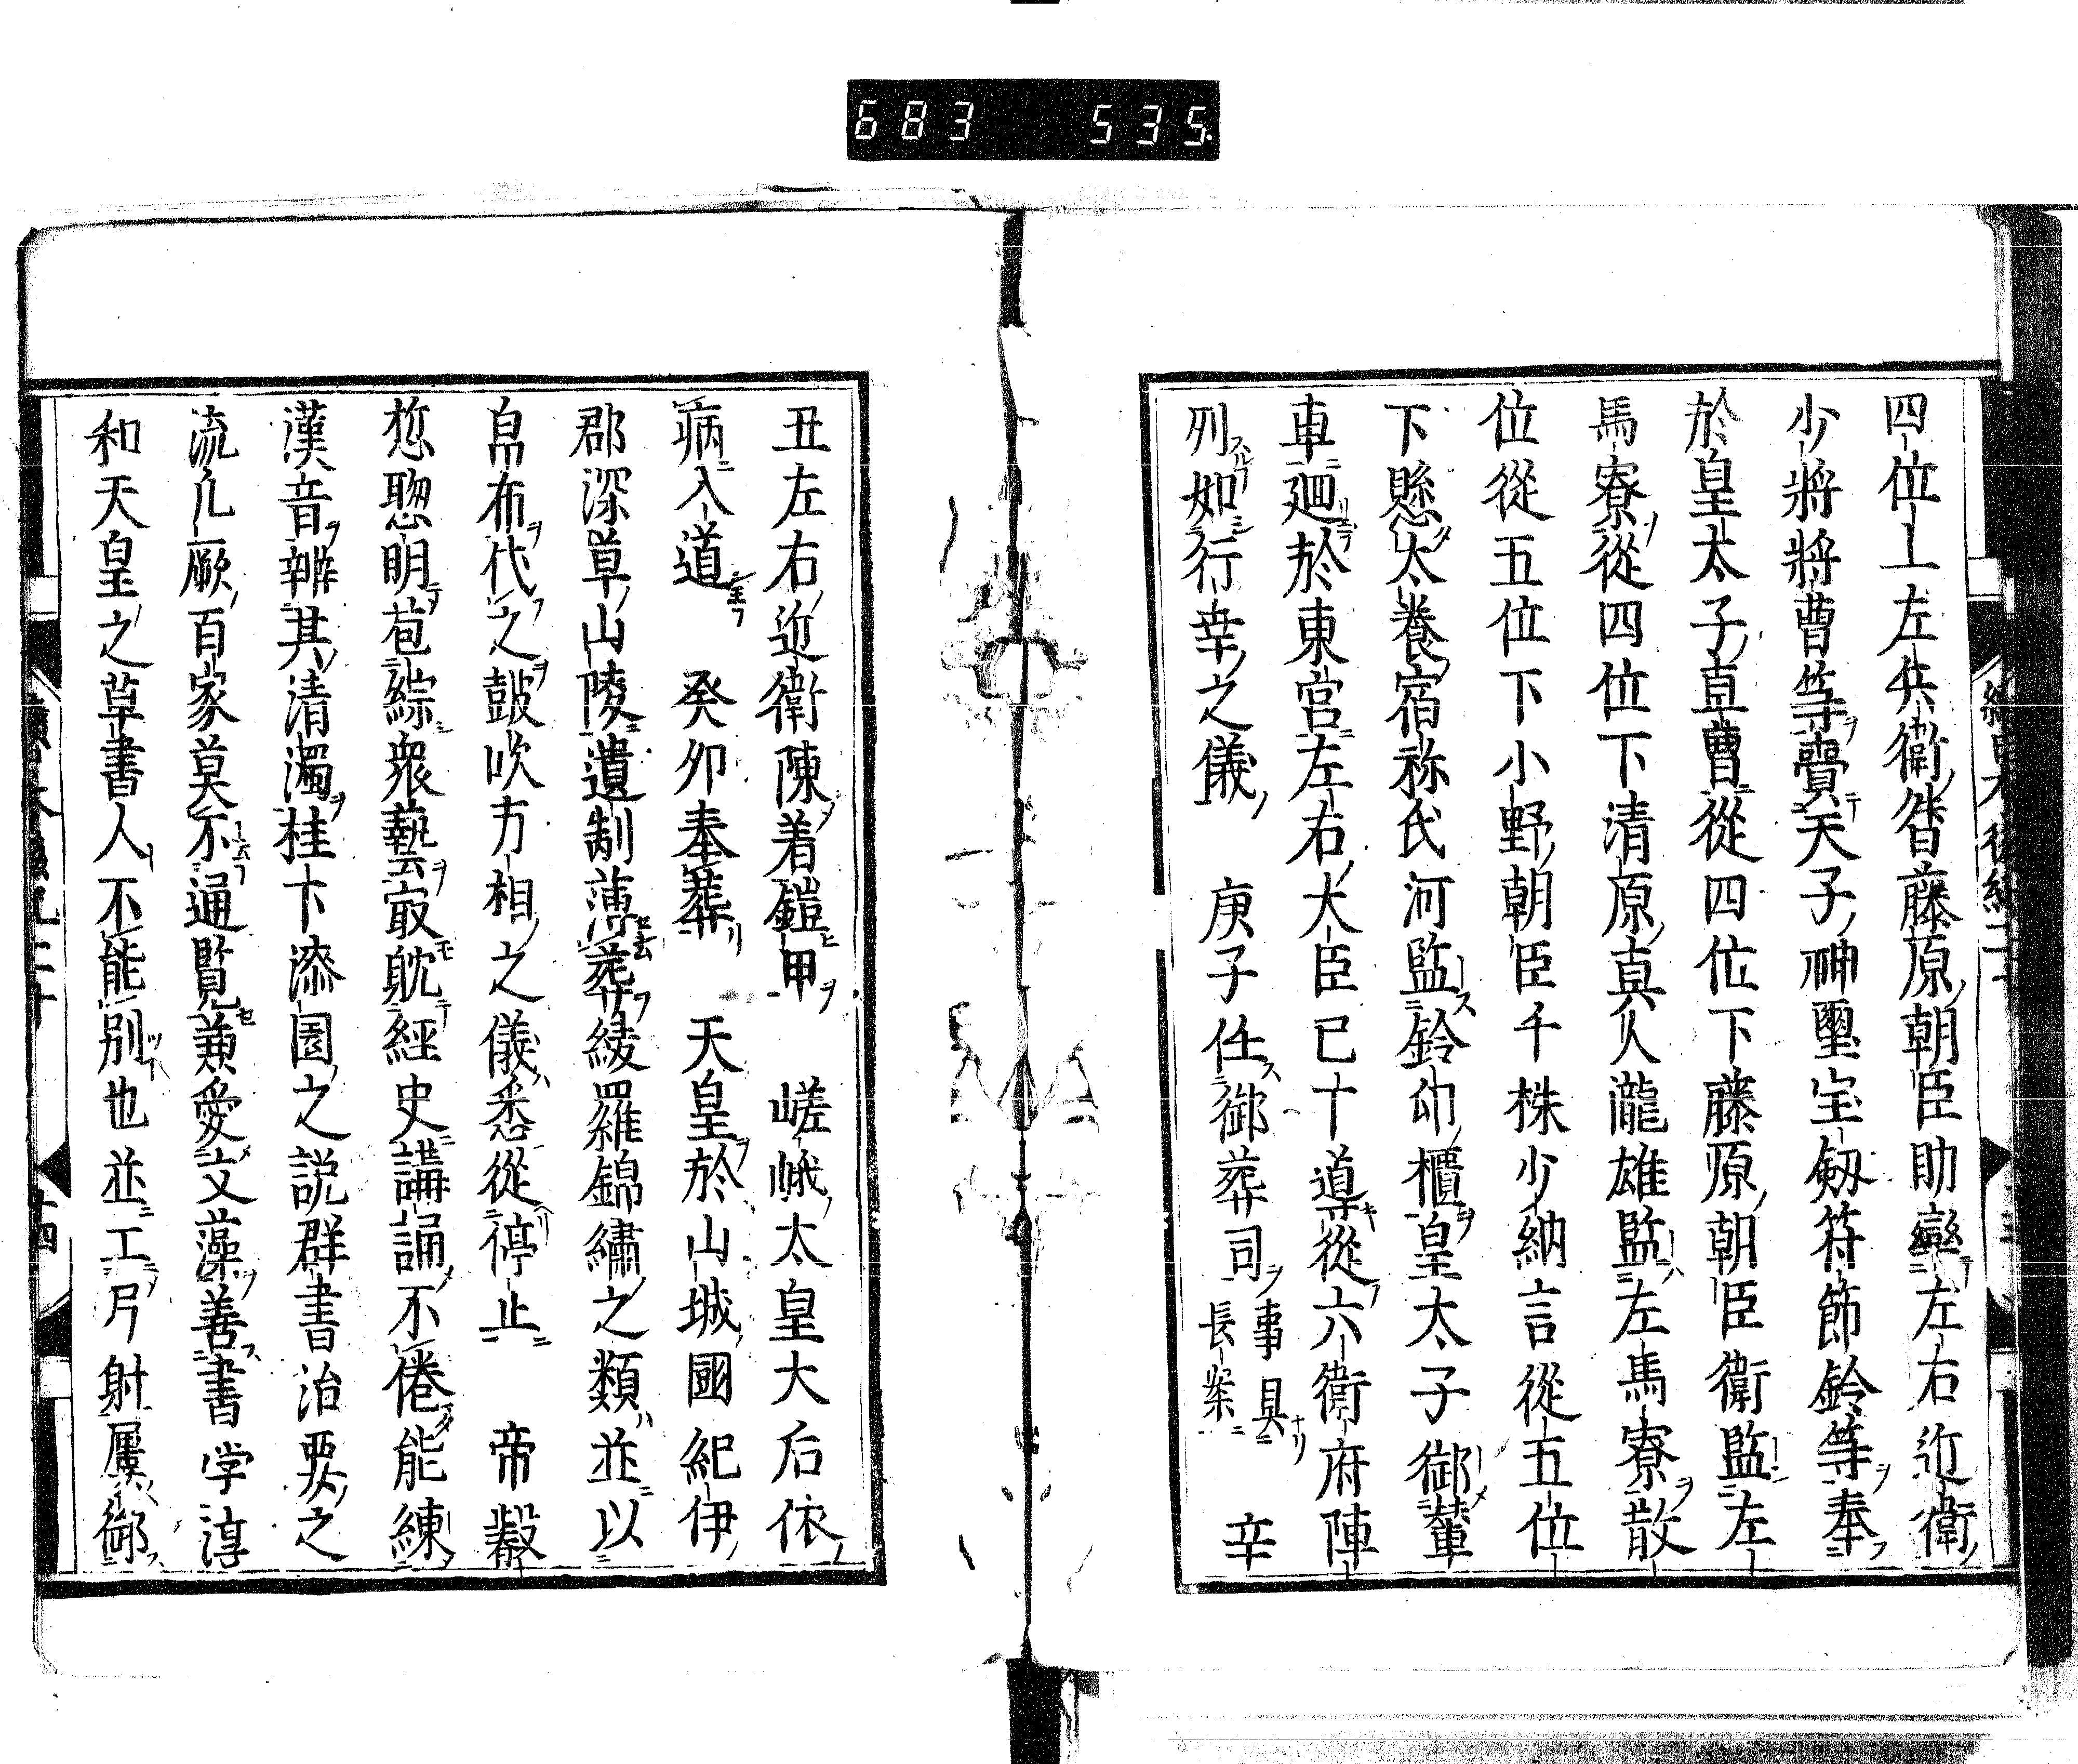 683 535
四位上左兵衛督藤原朝臣助率左右近衛
少將將曹等賷天子神璽宝劔符節鈴等奉
於皇太子直曹從四位下藤原朝臣衛監左
馬寮從四位下清原真人瀧雄監左馬寮散
位從五位下小野朝臣千株少納言從五位
下縣太養宿祢氏河監鈴印櫃皇太子御輦
車廻於東宮左右大臣已十導從六衛府陣
列如行幸之儀 庚子任御葬司 事具長案 辛
丑左右近衛陳着鎧甲 嵯峨太皇大后依
病入道 癸卯奉葬 天皇於山城國紀伊
郡深草山陵遺制薄葬綾羅錦繡之類並以
帛布代之鼓吹方相之儀悉從停止 帝叡
悊聰明苞綜衆藝㝡躭經史講誦不倦能練
漢音辨其清濁柱下漆園之説群書治要之
流凢厥百家莫不通覧兼愛文藻善書学淳
和天皇之草書人不能別也並工弓射屢御